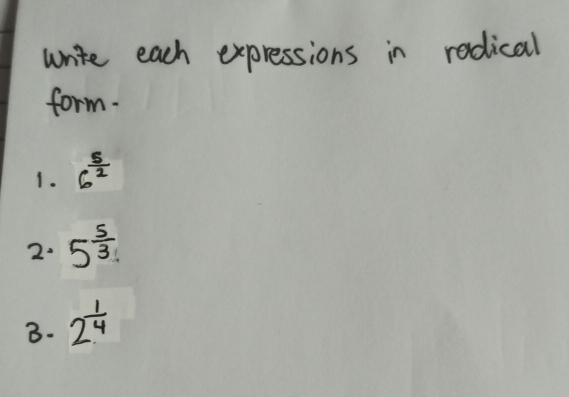 Write each expressions in radical
form.
1. 6^{\frac{5}{2}}
2. 5^{\frac{5}{3}}
3. 2^{\frac{1}{4}}